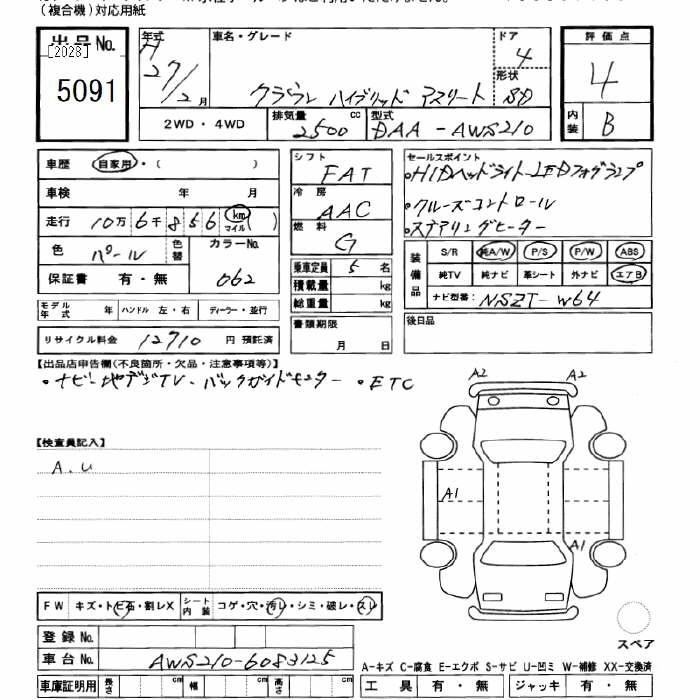 (複合機)対応用紙
出品No.
[2023]
5091
年式
H
27/2月
車名・グレード
クラウン ハイブリッド アスリート
ドア
4
形状
SD
評価点
4
内装
B
2WD・4WD
排気量
2500 cc
型式
DAA-AWS210
車歴 自家用・( )
車検 年 月
走行 10万6千856 km マイル ( )
色 パール
色替
カラーNo.
062
保証書 有・無
シフト
FAT
冷房
AAC
燃料
G
乗車定員 5名
積載量 kg
総重量 kg
書類期限
月 日
セールスポイント
•HIDヘッドライト-LEDフォグランプ
•クルーズコントロール
•ステアリングヒーター
装備品
S/R 純A/W P/S P/W ABS
純TV 純ナビ 革シート 外ナビ エアB
ナビ型番: NSZT-W64
後日品
モデル年式 年 ハンドル 左・右 ディーラー・並行
リサイクル料金 12710 円 預託済
【出品店申告欄(不良箇所・欠品・注意事項等)】
•ナビ-地デジTV-バックガイドモニター •ETC
【検査員記入】
A.U
A2
A2
A1
A1
スペア
FW キズ・トビ石・割レX
シート内装 コゲ・穴・汚レ・シミ・破レ・スレ
登録No.
車台No. AWS210-6083125
A-キズ C-腐食 E-エクボ S-サビ U-凹ミ W-補修 XX-交換済
車庫証明用 長さ cm 幅 cm 高さ cm
工具 有・無 ジャッキ 有・無